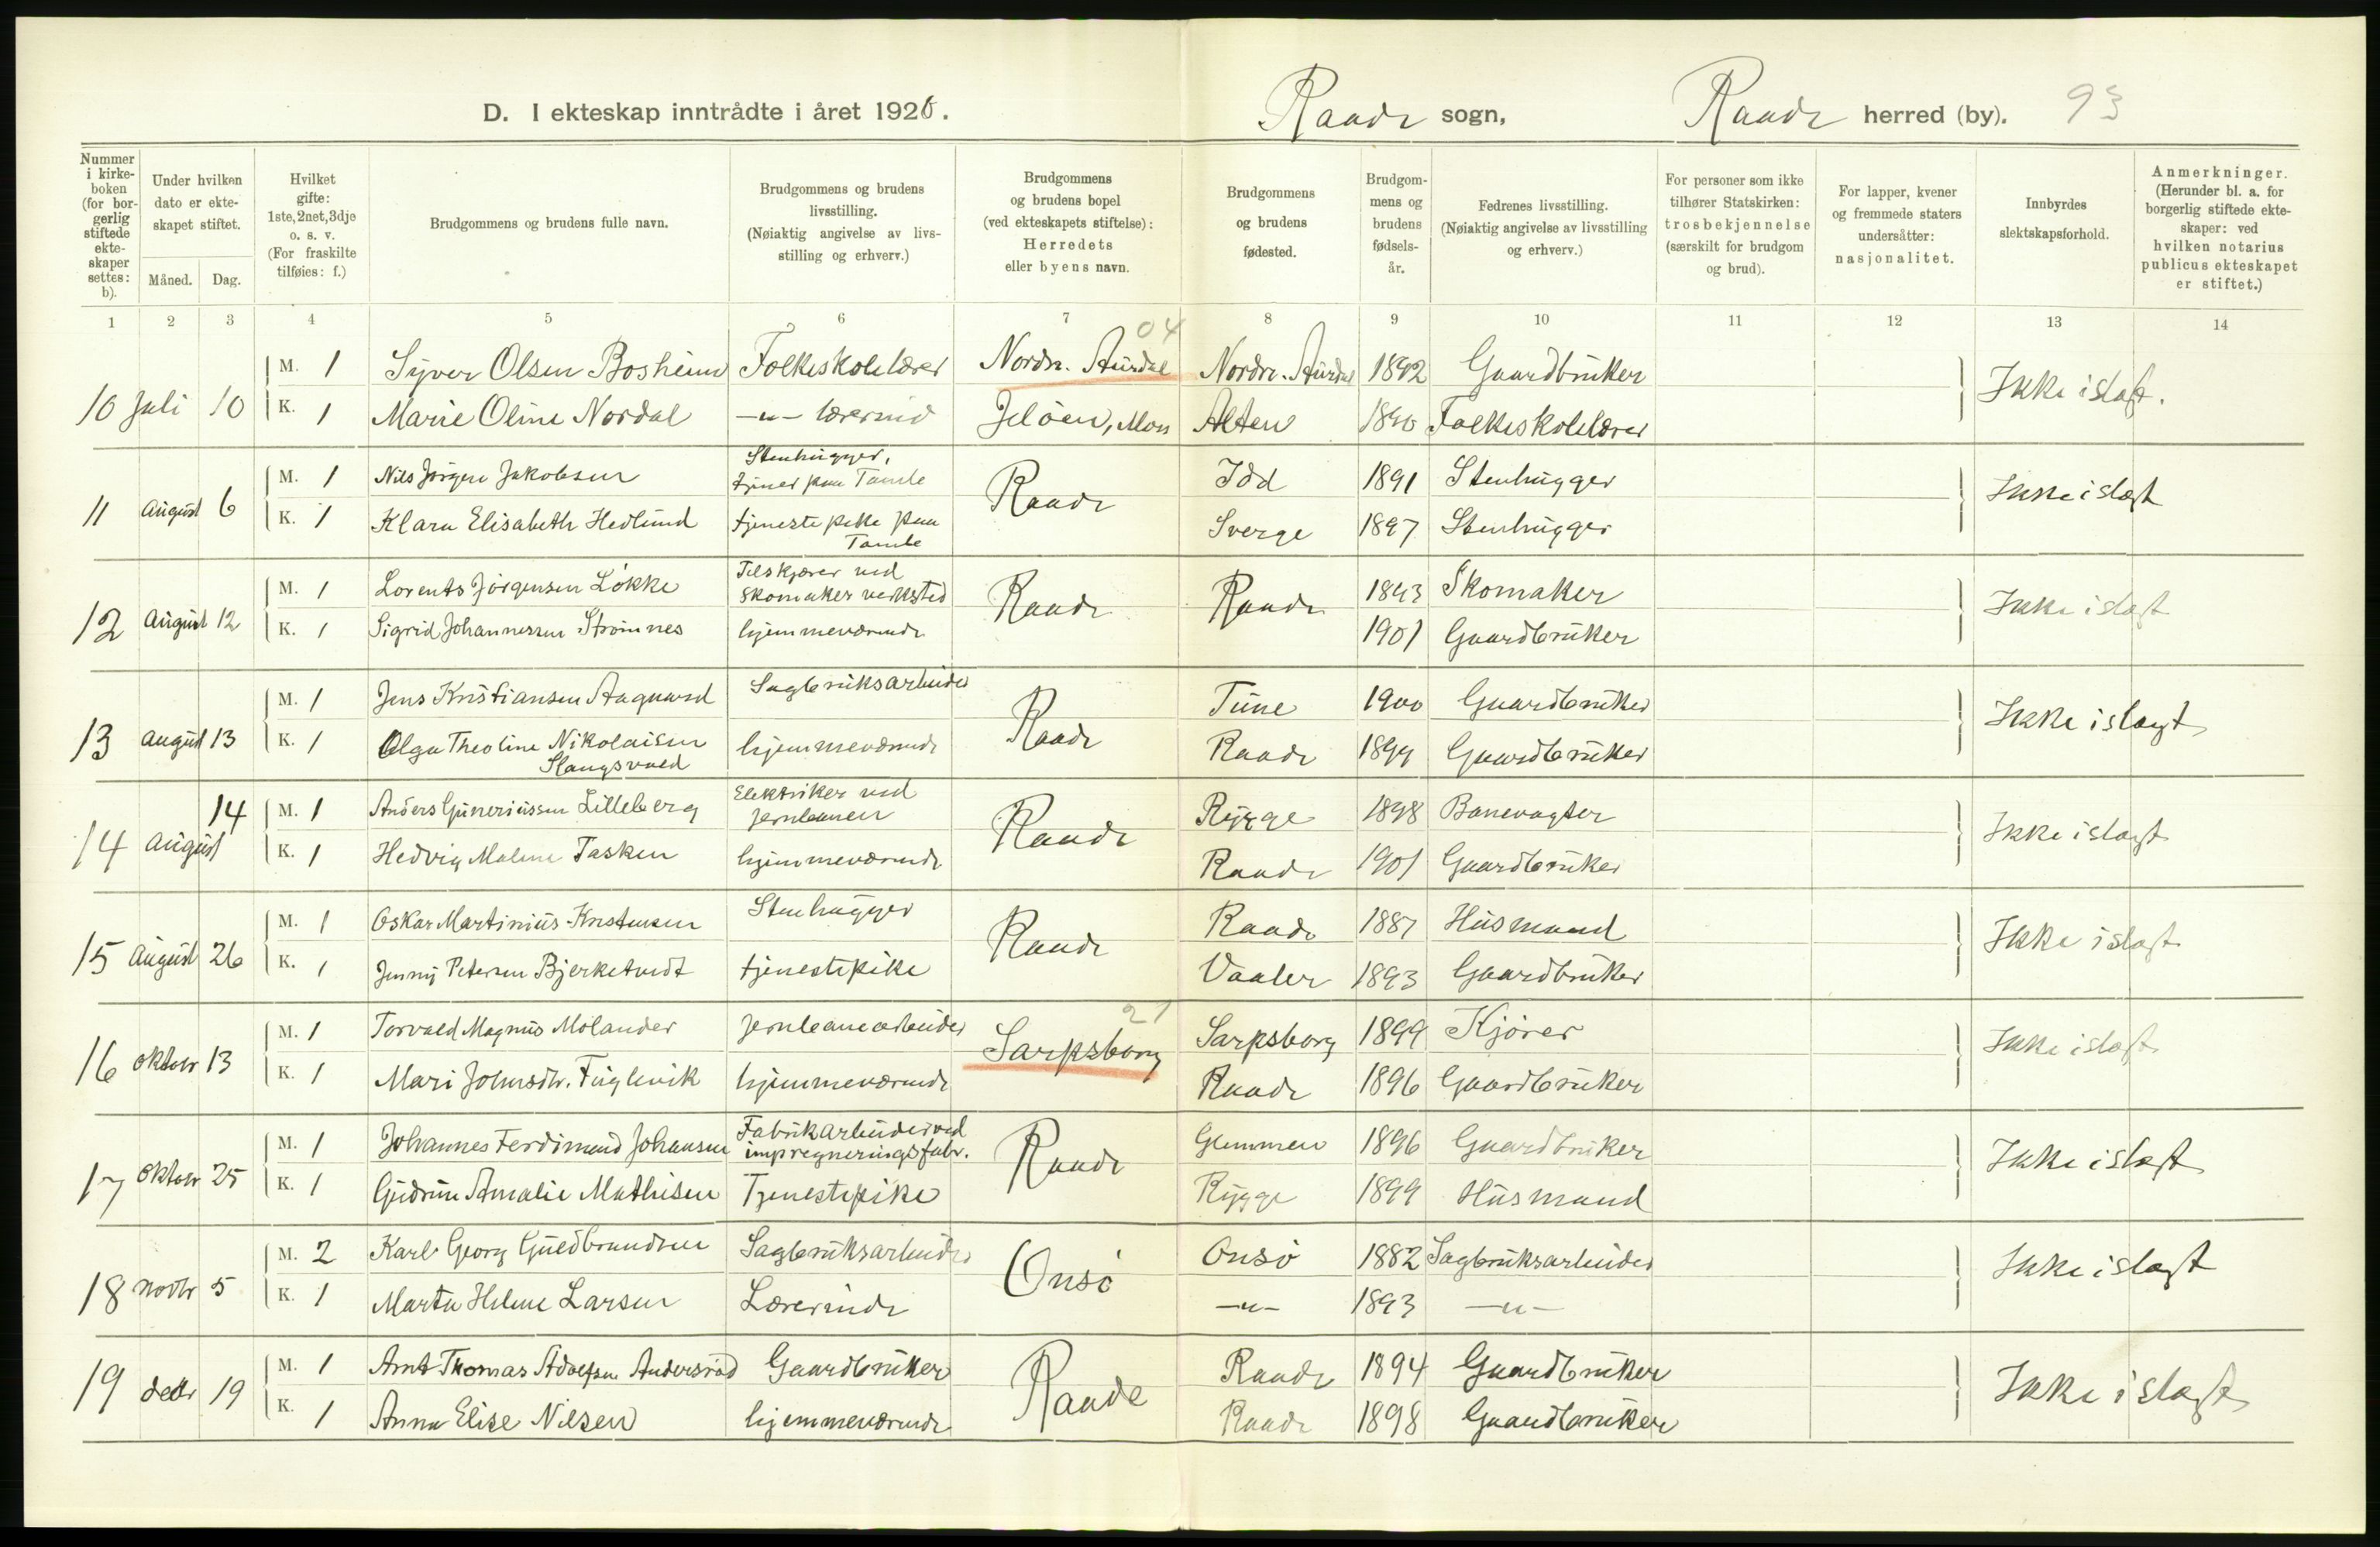 D. I ekteskap inntrådte i året 1920.
Raade sogn, Raade herred (by). 93
Nummer i kirkeboken (for borgerlig stiftede ekteskaper settes: b).
Under hvilken dato er ekteskapet stiftet.
Måned. Dag.
Hvilket gifte: 1ste, 2net, 3dje o. s. v. (For fraskilte tilføies: f.)
Brudgommens og brudens fulle navn.
Brudgommens og brudens livsstilling. (Nøiaktig angivelse av livsstilling og erhverv.)
Brudgommens og brudens bopel (ved ekteskapets stiftelse): Herredets eller byens navn.
Brudgommens og brudens fødested.
Brudgommens og brudens fødselsår.
Fedrenes livsstilling. (Nøiaktig angivelse av livsstilling og erhverv.)
For personer som ikke tilhører Statskirken: trosbekjennelse (særskilt for brudgom og brud).
For lapper, kvener og fremmede staters undersåtter: nasjonalitet.
Innbyrdes slektskapsforhold.
Anmerkninger. (Herunder bl. a. for borgerlig stiftede ekteskaper: ved hvilken notarius publicus ekteskapet er stiftet.)
1 2 3 4 5 6 7 8 9 10 11 12 13 14
04
M. 1 Syver Olsen Bosheim Folkeskolelærer Nordre Aurdal Nordre Aurdal 1892 Gaardbruker
10 Juli 10 Ikke i slægt.
K. 1 Marie Oline Nordal —"— lærerind Jeløen, Moss Alten 1890 Folkeskolelærer
M. 1 Nils Jørgen Jakobsen Stenhugger, tjener paa Tomle Idd 1891 Stenhugger
11 August 6 Raade Ikke i slægt
K. 1 Klara Elisabeth Hedlund tjenestepike paa Tomle Sverge 1897 Stenhugger
M. 1 Lorents Jörgensen Lökke Tilskjærer ved skomaker verksted 1893 Skomaker
12 August 12 Raade Raade Ikke i slægt
K. 1 Sigrid Johannessen Strømnes hjemmeværende 1901 Gaardbruker
M. 1 Jens Kristiansen Aagaard Sagbruksarbeider Tune 1900 Gaardbruker
13 August 13 Raade Ikke i slægt
K. 1 Olga Theoline Nikolaisen Slangsvold hjemmeværende Raade 1899 Gaardbruker
M. 1 Anders Guneriussen Lilleberg Elektriker ved jernbanen Rygge 1898 Banevagter
14 August 14 Raade Ikke i slægt
K. 1 Hedvig Malene Tasken hjemmeværende Raade 1901 Gaardbruker
M. 1 Oskar Martinius Kristensen Stenhugger Raade 1887 Husmand
15 August 26 Raade Ikke i slægt
K. 1 Jenny Petersen Bjerketvedt tjenestepike Vaaler 1893 Gaardbruker
21
M. 1 Torvald Magnus Molander Jernbanearbeider Sarpsborg 1899 Kjører
16 Oktobr 13 Sarpsborg Ikke i slægt
K. 1 Mari Johnsdtr. Fuglevik hjemmeværende Raade 1896 Gaardbruker
M. 1 Johannes Ferdinand Johansen Fabrikarbeider ved impregneringsfabr. Glemmen 1896 Gaardbruker
17 Oktobr 25 Raade Ikke i slægt
K. 1 Gudrun Amalie Mathisen Tjenestepike Rygge 1899 Husmand
M. 2 Karl Georg Guldbrandsen Sagbruksarbeider Onsö 1882 Sagbruksarbeider
18 Novbr 5 Onsö Ikke i slægt
K. 1 Marta Helene Larsen Lærerinde —"— 1893 —"—
M. 1 Arnt Thomas Adolfsen Andersrød Gaardbruker Raade 1894 Gaardbruker
19 decbr 19 Raade Ikke i slægt
K. 1 Anna Elise Nilsen hjemmeværende Raade 1898 Gaardbruker